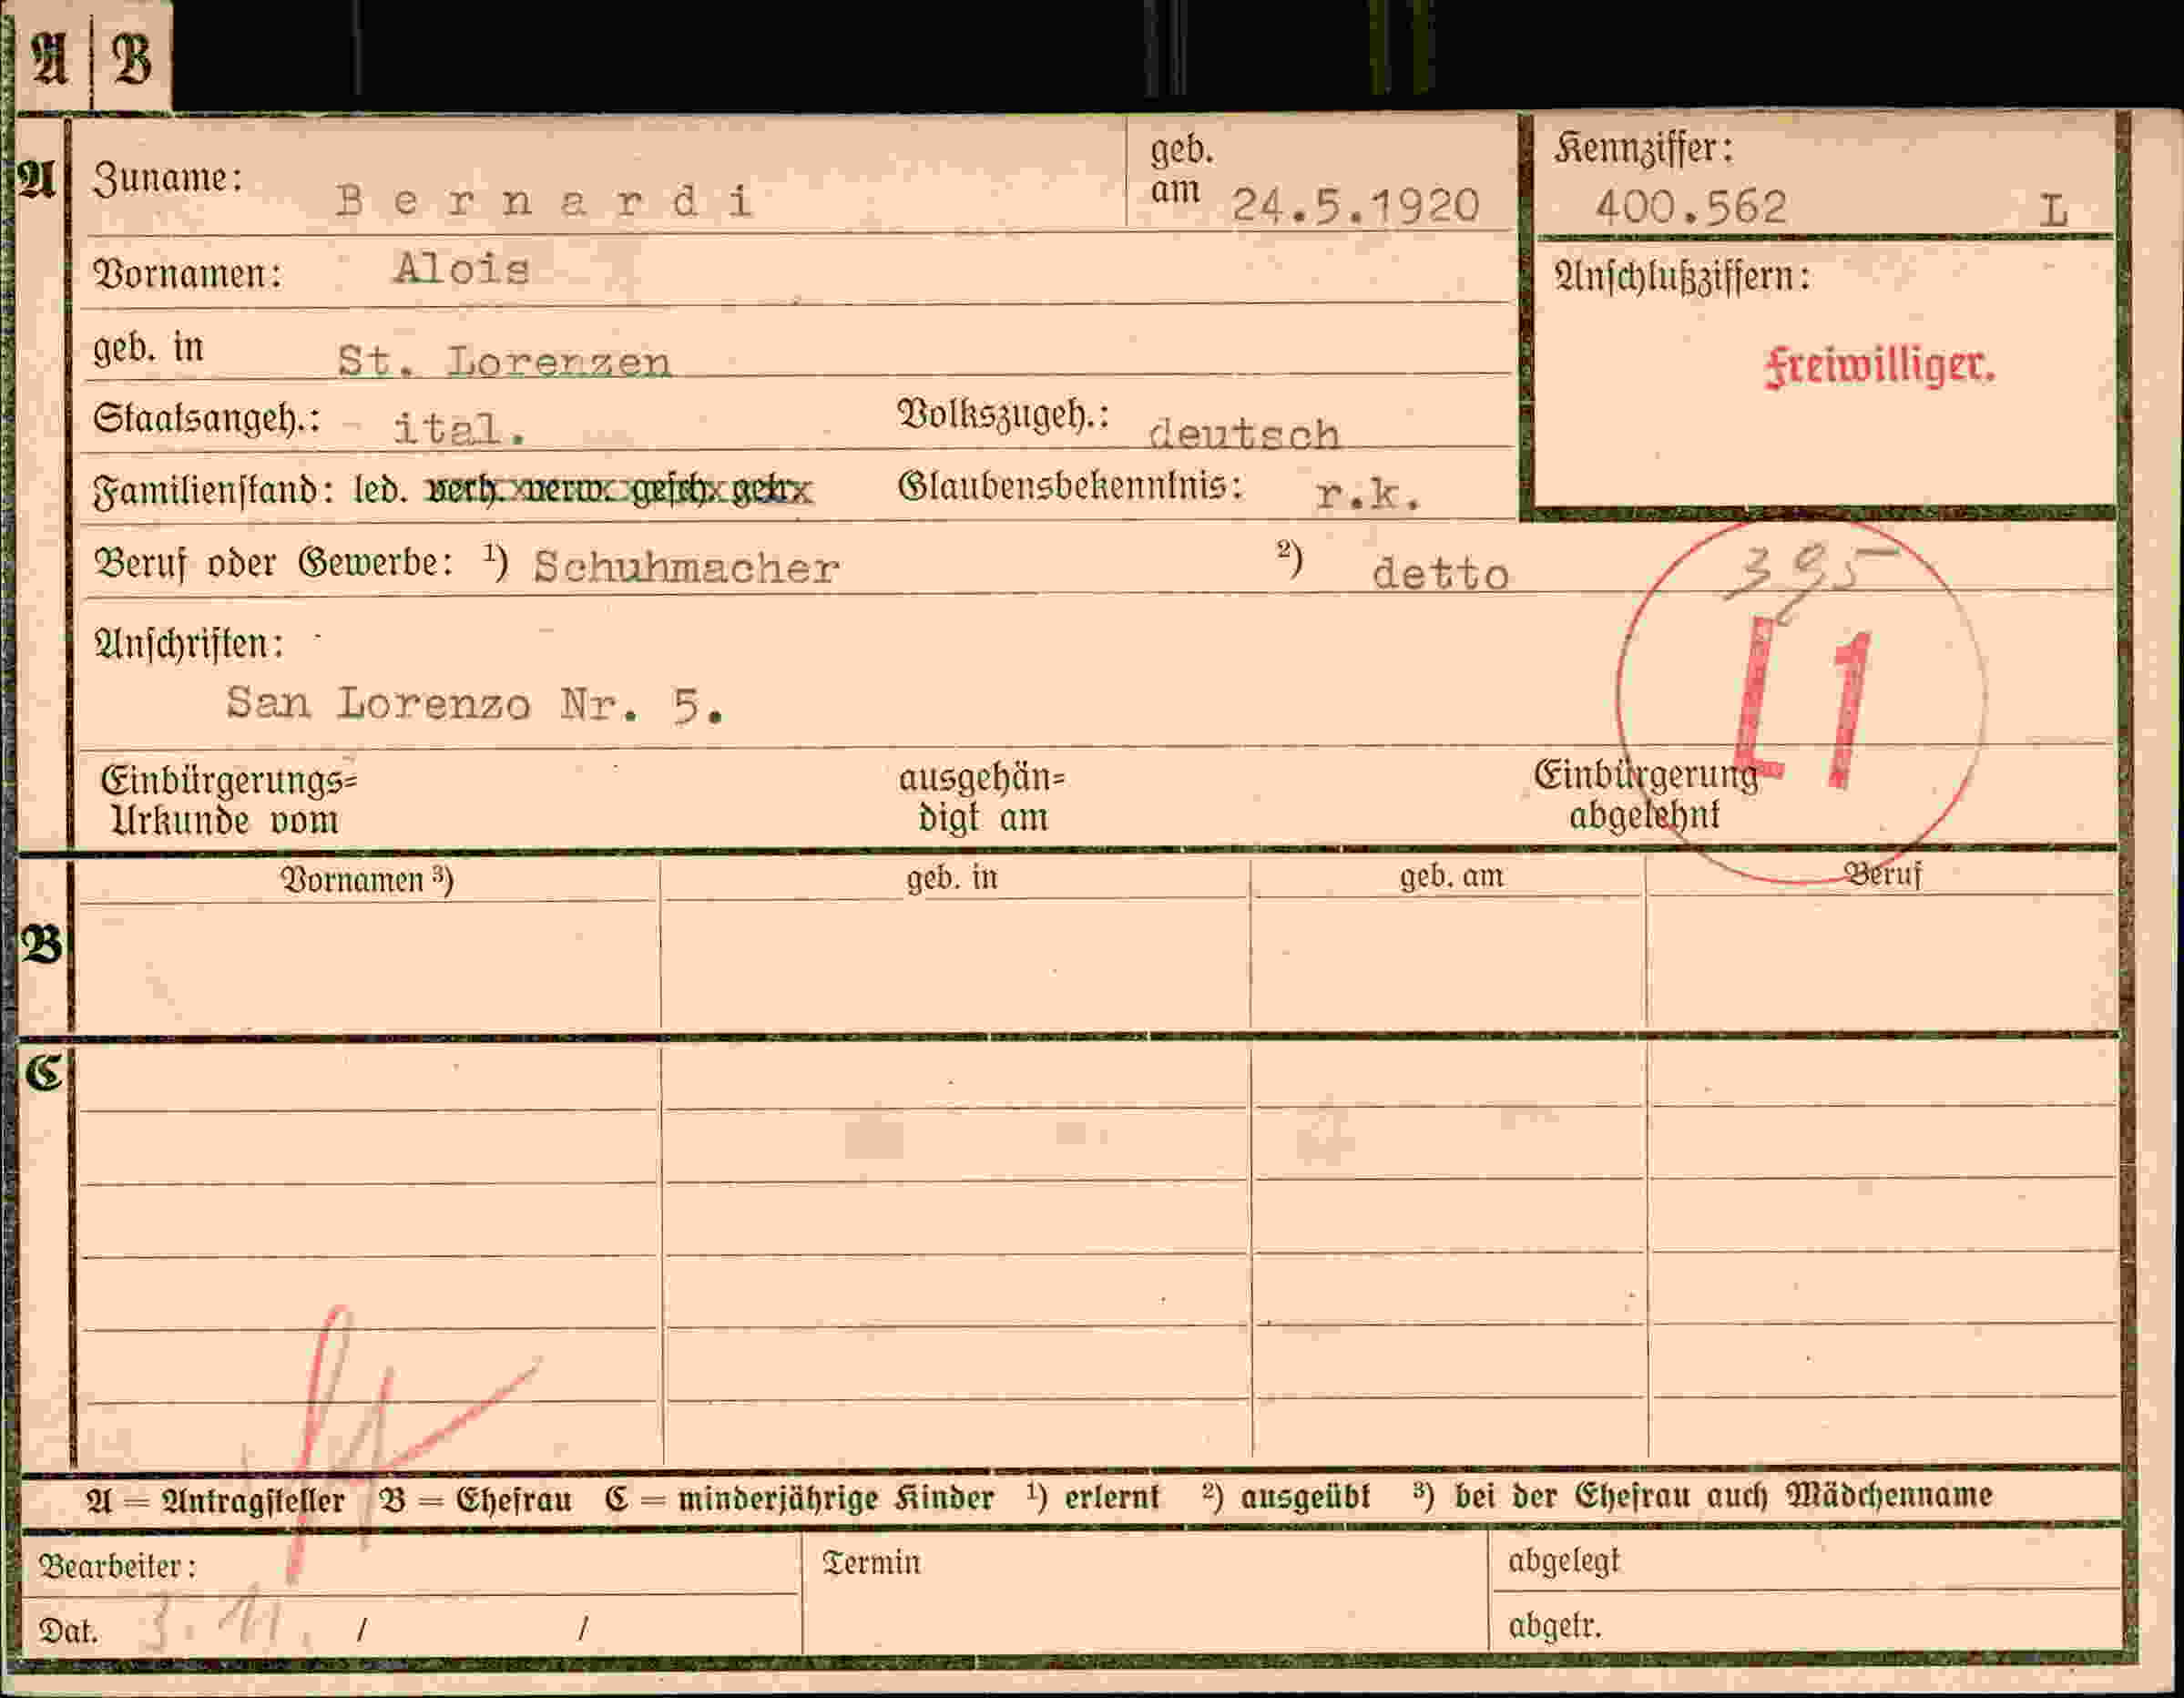 A | B
A Zuname: Bernardi geb. am 24.5.1920 Kennziffer: 400.562 L
Vornamen: Alois Anschlußziffern:
Freiwilliger.
geb. in St. Lorenzen
Staatsangeh.: ital. Volkszugeh.: deutsch
Familienstand: led. verh. verw. gesch. getr. Glaubensbekenntnis: r.k.
Beruf oder Gewerbe: ¹) Schuhmacher ²) detto
395
L1
Anschriften:
San Lorenzo Nr. 5.
Einbürgerungs= ausgehän= Einbürgerung
Urkunde vom digt am abgelehnt
Vornamen ³) geb. in geb. am Beruf
B
C
A = Antragsteller B = Ehefrau C = minderjährige Kinder ¹) erlernt ²) ausgeübt ³) bei der Ehefrau auch Mädchenname
Bearbeiter: Termin abgelegt
Dat. 3.11. / / abgetr.